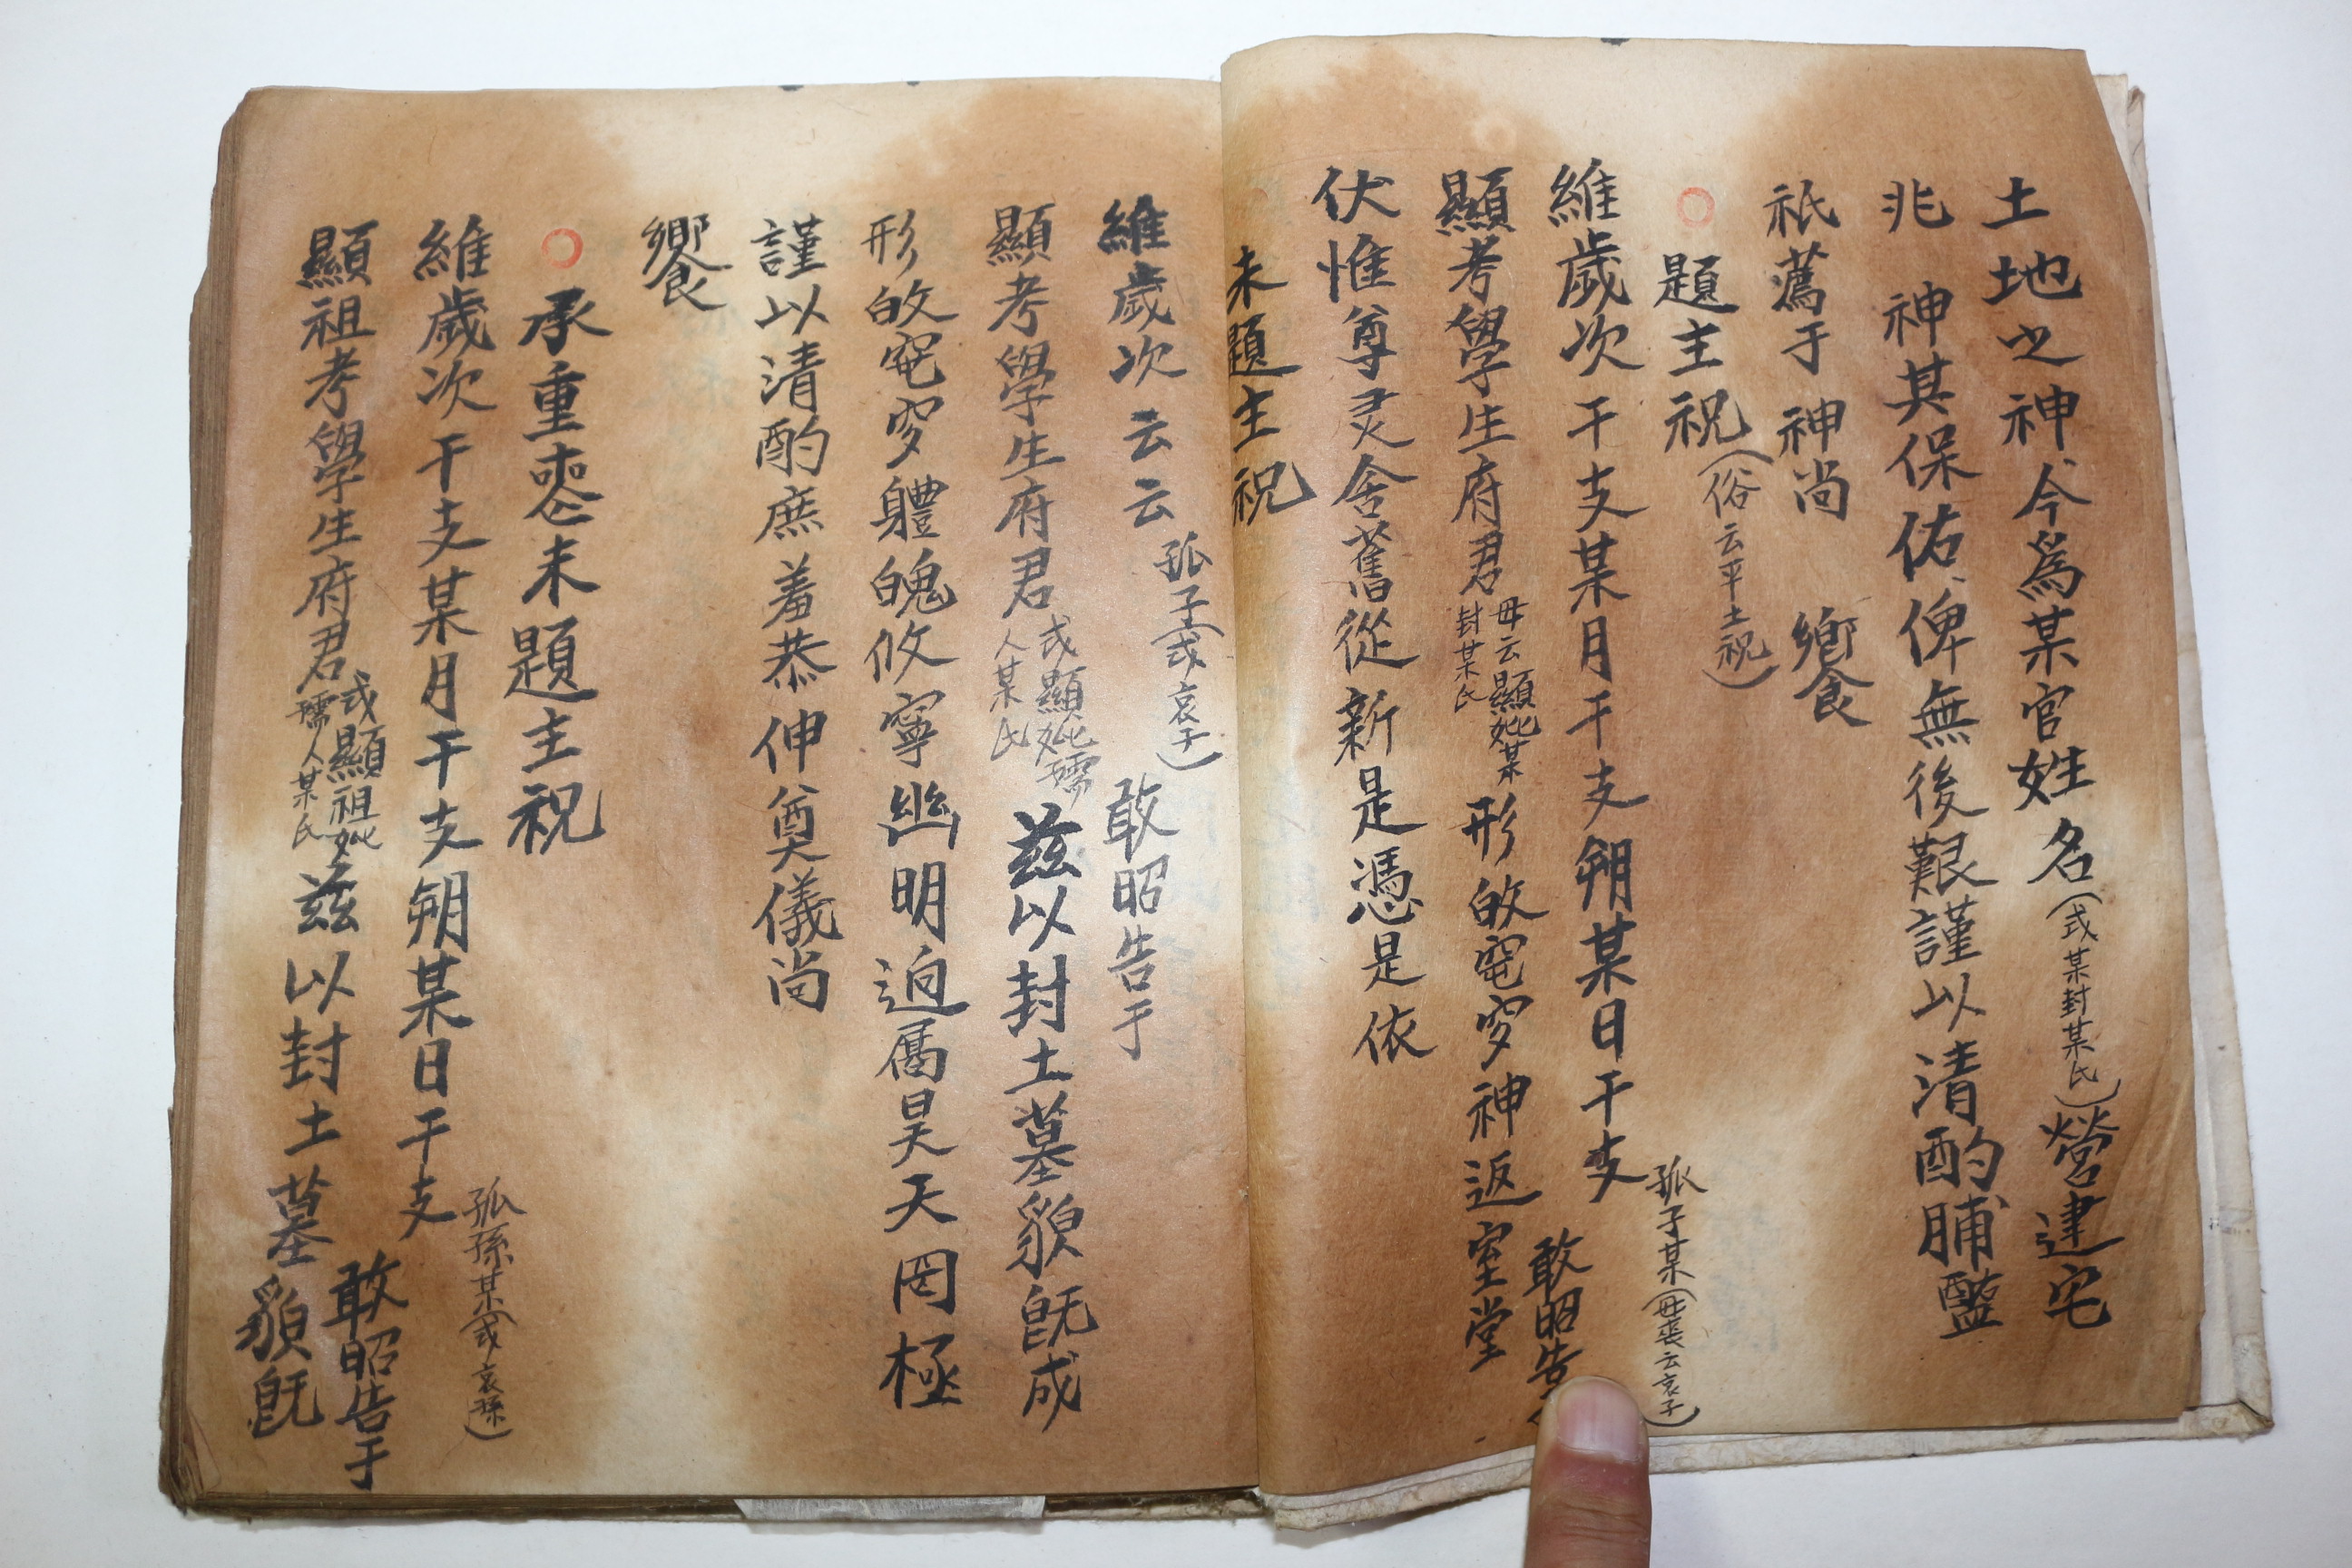 土地之神今爲某官姓名(或某封某氏)營建宅
兆 神其保佑俾無後艱謹以清酌脯醢
祇薦于神尚 饗
○ 題主祝(俗云平土祝)
維歲次干支某月干支朔某日干支 孤子某(母喪云哀子) 敢昭告
顯考學生府君 母云顯妣某封某氏 形皈窀穸神返室堂
伏惟尊灵舍舊從新是憑是依
未題主祝
維歲次云云 孤子(或哀子) 敢昭告于
顯考學生府君 或顯妣孺人某氏 兹以封土墓貌旣成
形皈窀穸軆魄攸寧幽明逈屬昊天罔極
謹以清酌庶羞恭伸奠儀尚
饗
○ 承重喪未題主祝
維歲次干支某月干支朔某日干支 孤孫某(或哀孫) 敢昭告于
顯祖考學生府君 或顯祖妣孺人某氏 兹以封土墓貌旣